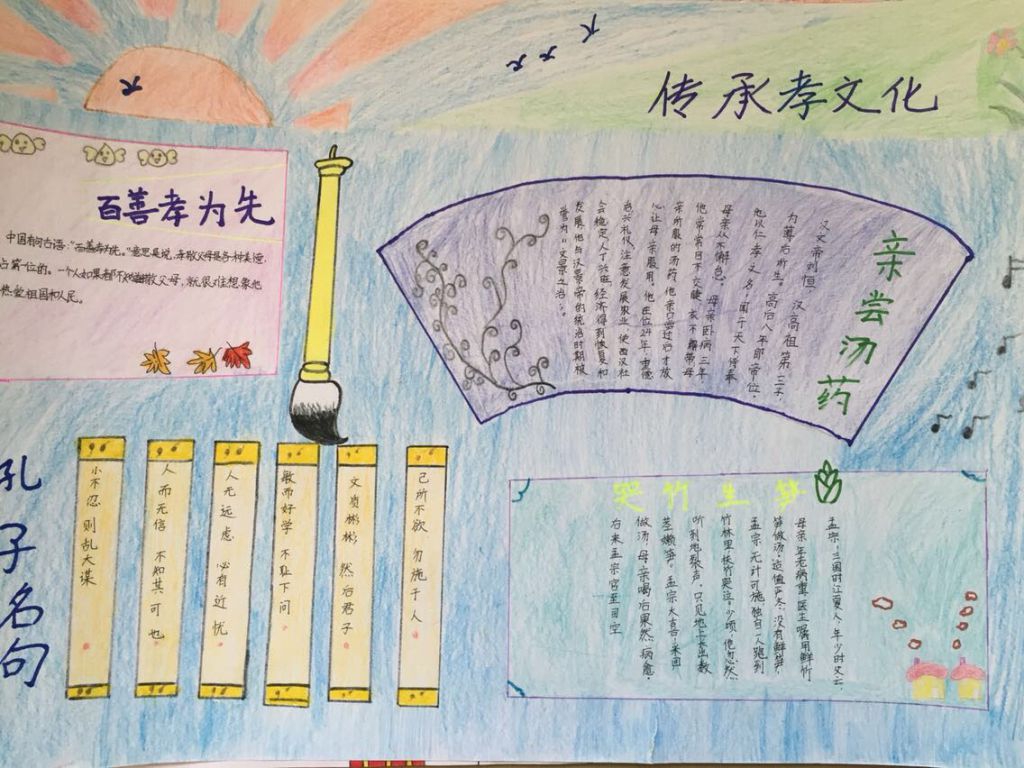 传承孝文化
百善孝为先
中国有句古语:“百善孝为先。”意思是说,孝敬父母是各种美德
占第一位的。一个人如果都不知道孝敬父母,就很难想象他
热爱祖国和人民。
亲尝汤药
汉文帝刘恒,汉高祖第三子,
为薄后所生。高后八年即帝位,
他以仁孝之名,闻于天下侍奉
母亲从不懈怠。母亲卧病三年
他常常目不交睫,衣不解带母
亲所服的汤药,他亲口尝过后才放
心让母亲服用。他在位24年,重德
治兴礼仪,注意发展农业,使西汉社
会稳定,人丁兴旺,经济得到恢复和
发展,他与汉景帝的统治时期被
誉为“文景之治”。
孔子名句
己所不欲 勿施于人
文质彬彬 然后君子
敏而好学 不耻下问
人无远虑 必有近忧
人而无信 不知其可也
小不忍 则乱大谋
哭竹生笋
孟宗,三国时江夏人,年少时父亡,
母亲年老病重,医生嘱用鲜竹
笋做汤,适值严冬,没有鲜笋,
孟宗无计可施,独自一人跑到
竹林里扶竹哭泣。少顷,他忽然
听到地裂声,只见地上长出数
茎嫩笋。孟宗大喜,采回
做汤,母亲喝后果然病愈,
后来孟宗官至司空